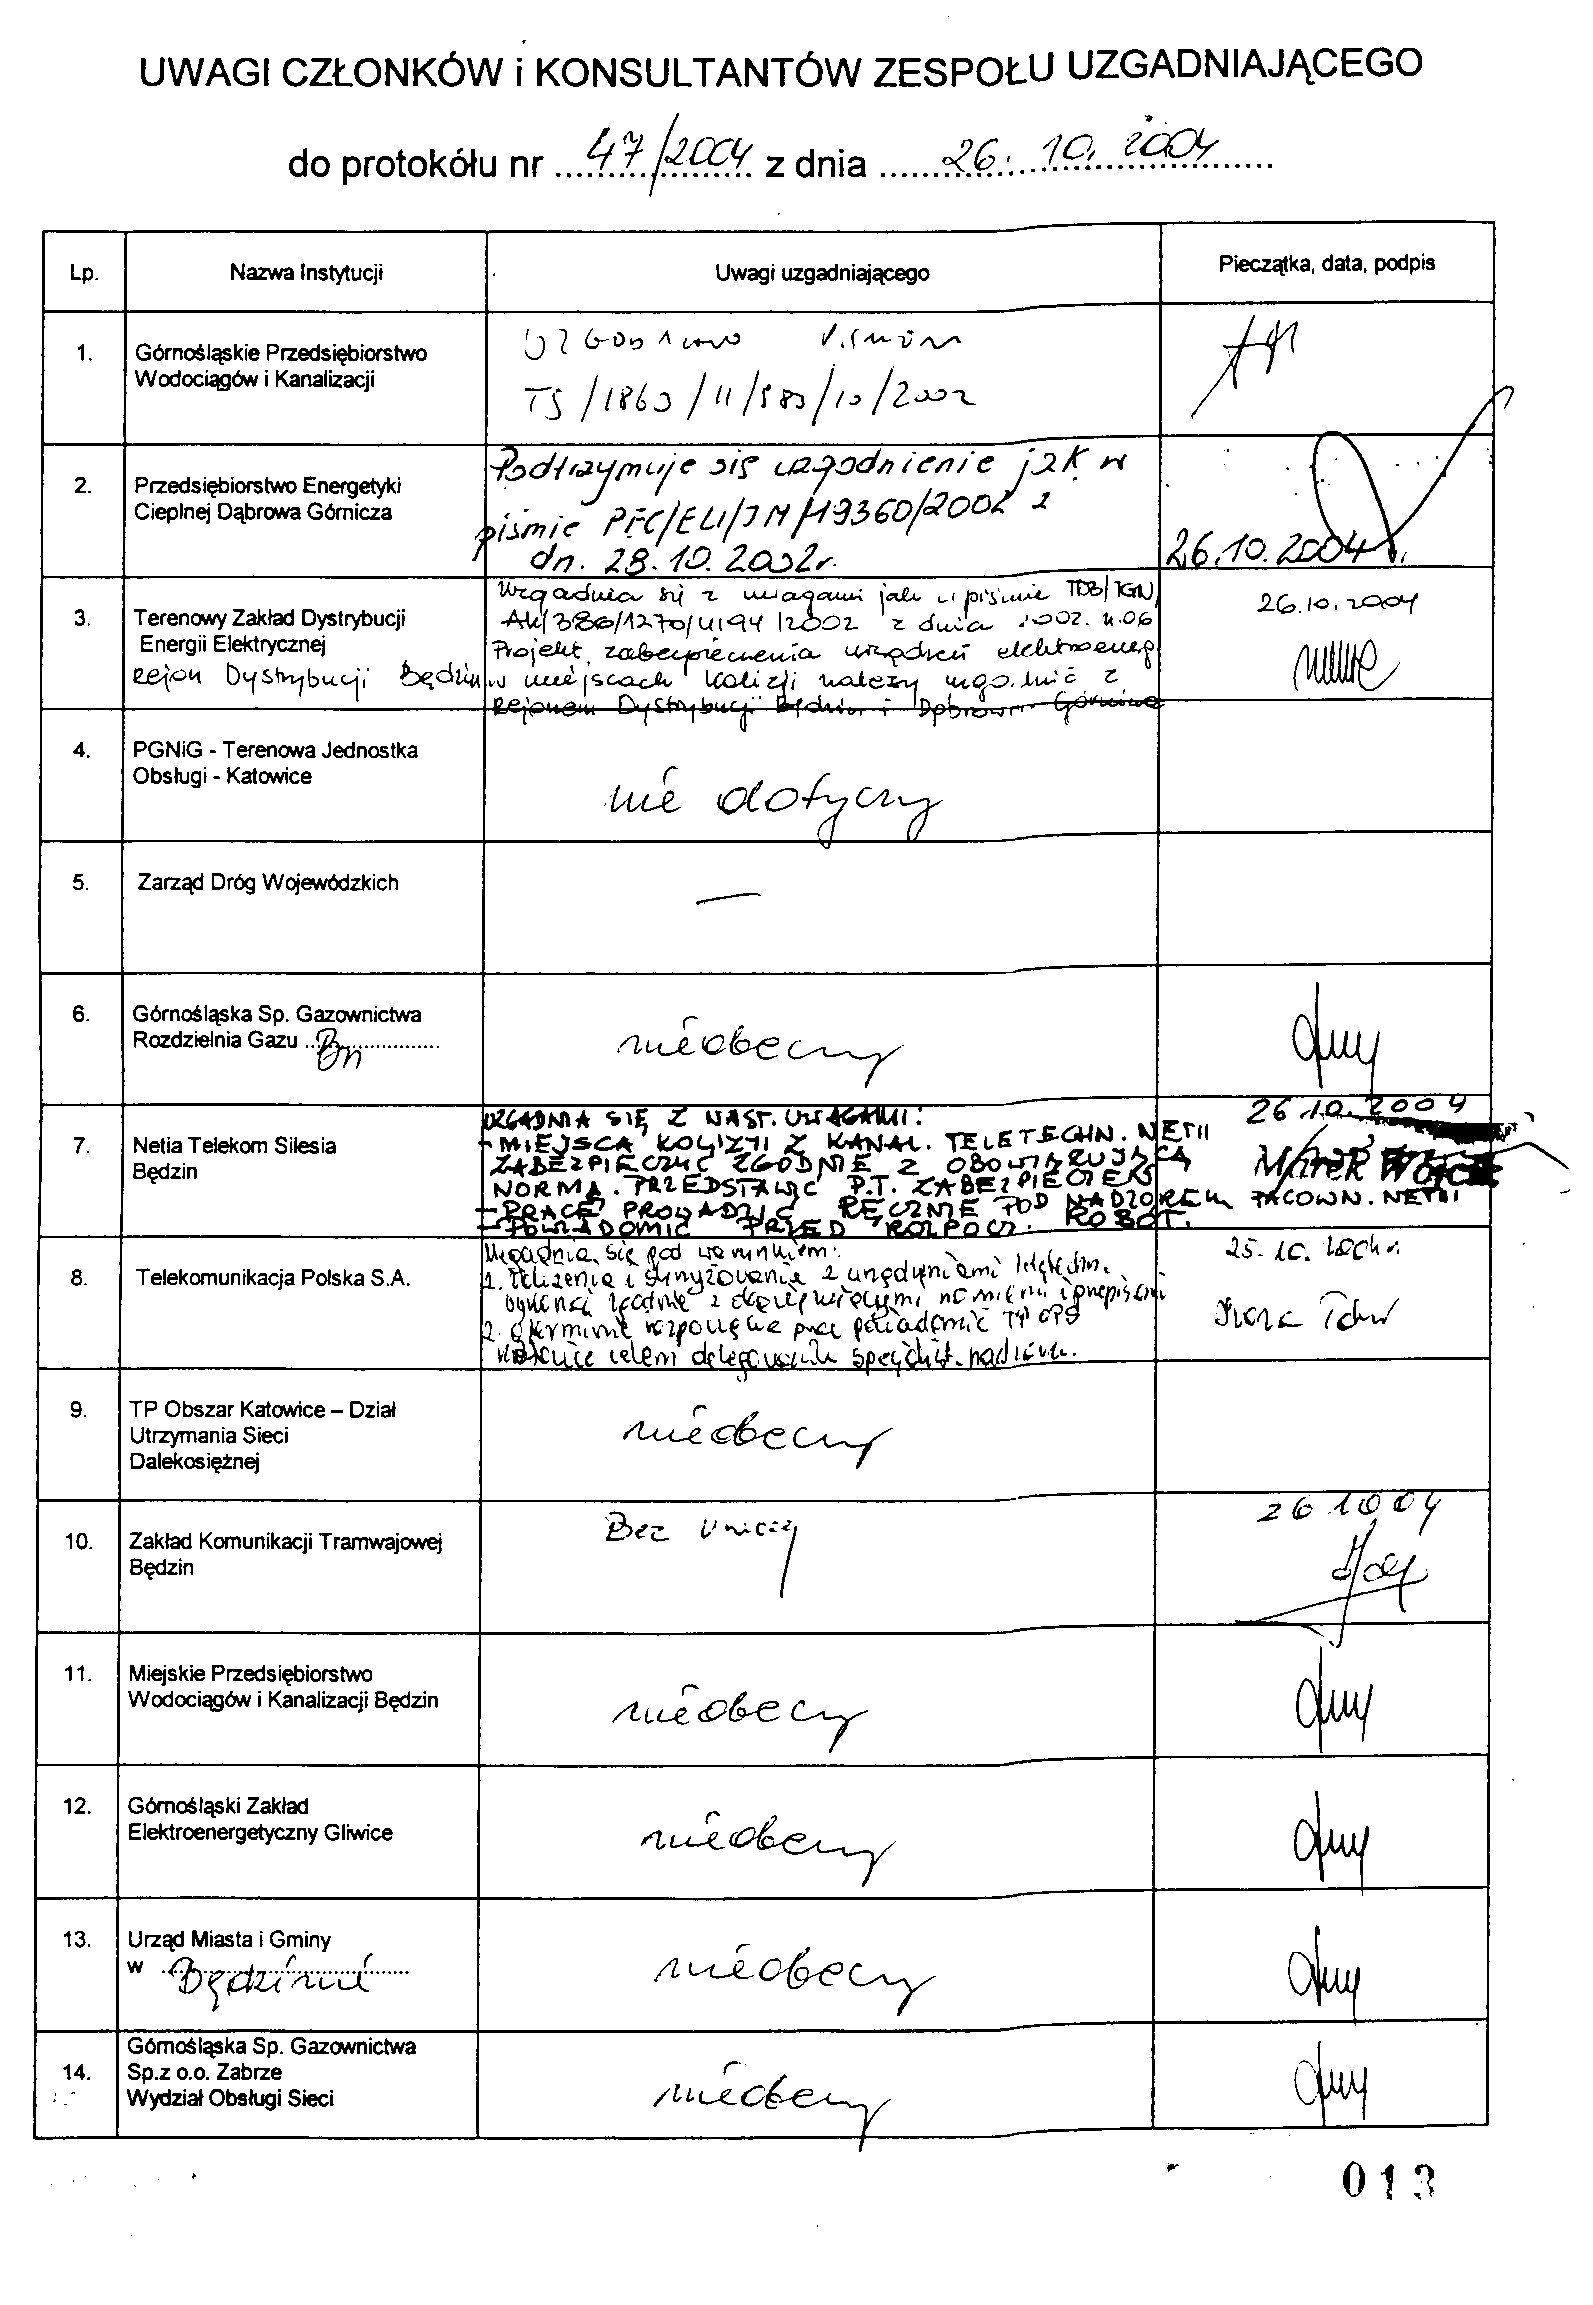 UWAGI CZŁONKÓW i KONSULTANTÓW ZESPOŁU UZGADNIAJĄCEGO
do protokółu nr ...47/2004 z dnia ......26. 10. 2004......
Lp.
Nazwa Instytucji
Uwagi uzgadniającego
Pieczątka, data, podpis
1.
Górnośląskie Przedsiębiorstwo
Wodociągów i Kanalizacji
UZGODNIONO
TS/1863/11/583/10/2002
2.
Przedsiębiorstwo Energetyki
Cieplnej Dąbrowa Górnicza
Podtrzymuje się uzgodnienie jak w
piśmie PEC/ELI/JM/19360/2002 z
dn. 28.10.2002r.
26.10.2004r.
3.
Terenowy Zakład Dystrybucji
Energii Elektrycznej
Rejon Dystrybucji Będzin
Uzgadnia się z uwagami jak w piśmie TDB/TGN/
AK/386/1270/4194/2002 z dnia 2002.11.06
Projekt zabezpieczenia urządzeń elektroenerg
w miejscach kolizji należy uzgodnić z
Rejonem Dystrybucji Będzin i Dąbrowa Górnicza
26.10.2004
4.
PGNiG - Terenowa Jednostka
Obsługi - Katowice
nie dotyczy
5.
Zarząd Dróg Wojewódzkich
—
6.
Górnośląska Sp. Gazownictwa
Rozdzielnia Gazu ..................
nieobecny
7.
Netia Telekom Silesia
Będzin
UZGADNIA SIĘ Z NAST. UWAGAMI:
- MIEJSCA KOLIZJI Z KANAŁ. TELETECHN. NETII
ZABEZPIECZYĆ ZGODNIE Z OBOWIĄZUJĄCĄ
NORMĄ. PRZEDSTAWIĆ P.T. ZABEZPIECZEŃ
- PRACE PROWADZIĆ RĘCZNIE POD NADZOREM PRACOWN. NETII
- POWIADOMIĆ PRZED ROZPOCZ. ROBÓT.
26.10.2004
Marek Wójcik
8.
Telekomunikacja Polska S.A.
Uzgadnia się pod warunkiem:
1. Zbliżenia i skrzyżowania z urządzeniami teletechn.
wykonać zgodnie z obowiązującymi normami i przepisami
2. O terminie rozpoczęcia prac powiadomić TP OPS
Katowice celem delegowania specjalist. nadzoru.
25.10.2004r.
9.
TP Obszar Katowice – Dział
Utrzymania Sieci
Dalekosiężnej
nieobecny
10.
Zakład Komunikacji Tramwajowej
Będzin
Bez
26 10 04
11.
Miejskie Przedsiębiorstwo
Wodociągów i Kanalizacji Będzin
nieobecny
12.
Górnośląski Zakład
Elektroenergetyczny Gliwice
nieobecny
13.
Urząd Miasta i Gminy
w Będzinie
nieobecny
14.
Górnośląska Sp. Gazownictwa
Sp.z o.o. Zabrze
Wydział Obsługi Sieci
nieobecny
013